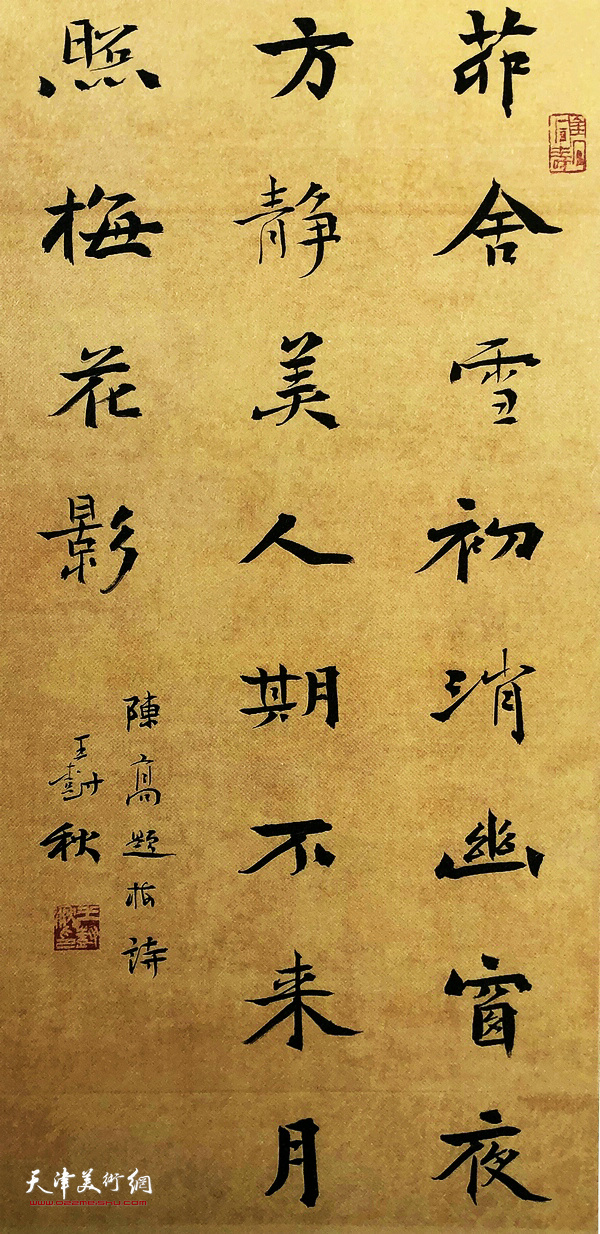 茆舍雪初消幽窗夜
方静美人期不来月
照梅花影
陳高題梅詩
王樹秋
天津美術網
www.022meishu.com